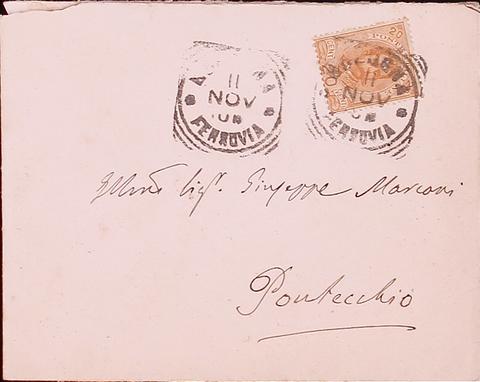 11
NOV
FERROVIA
20
POSTE
11
NOV
FERROVIA
Sig. Giuseppe Marconi
Pontecchio